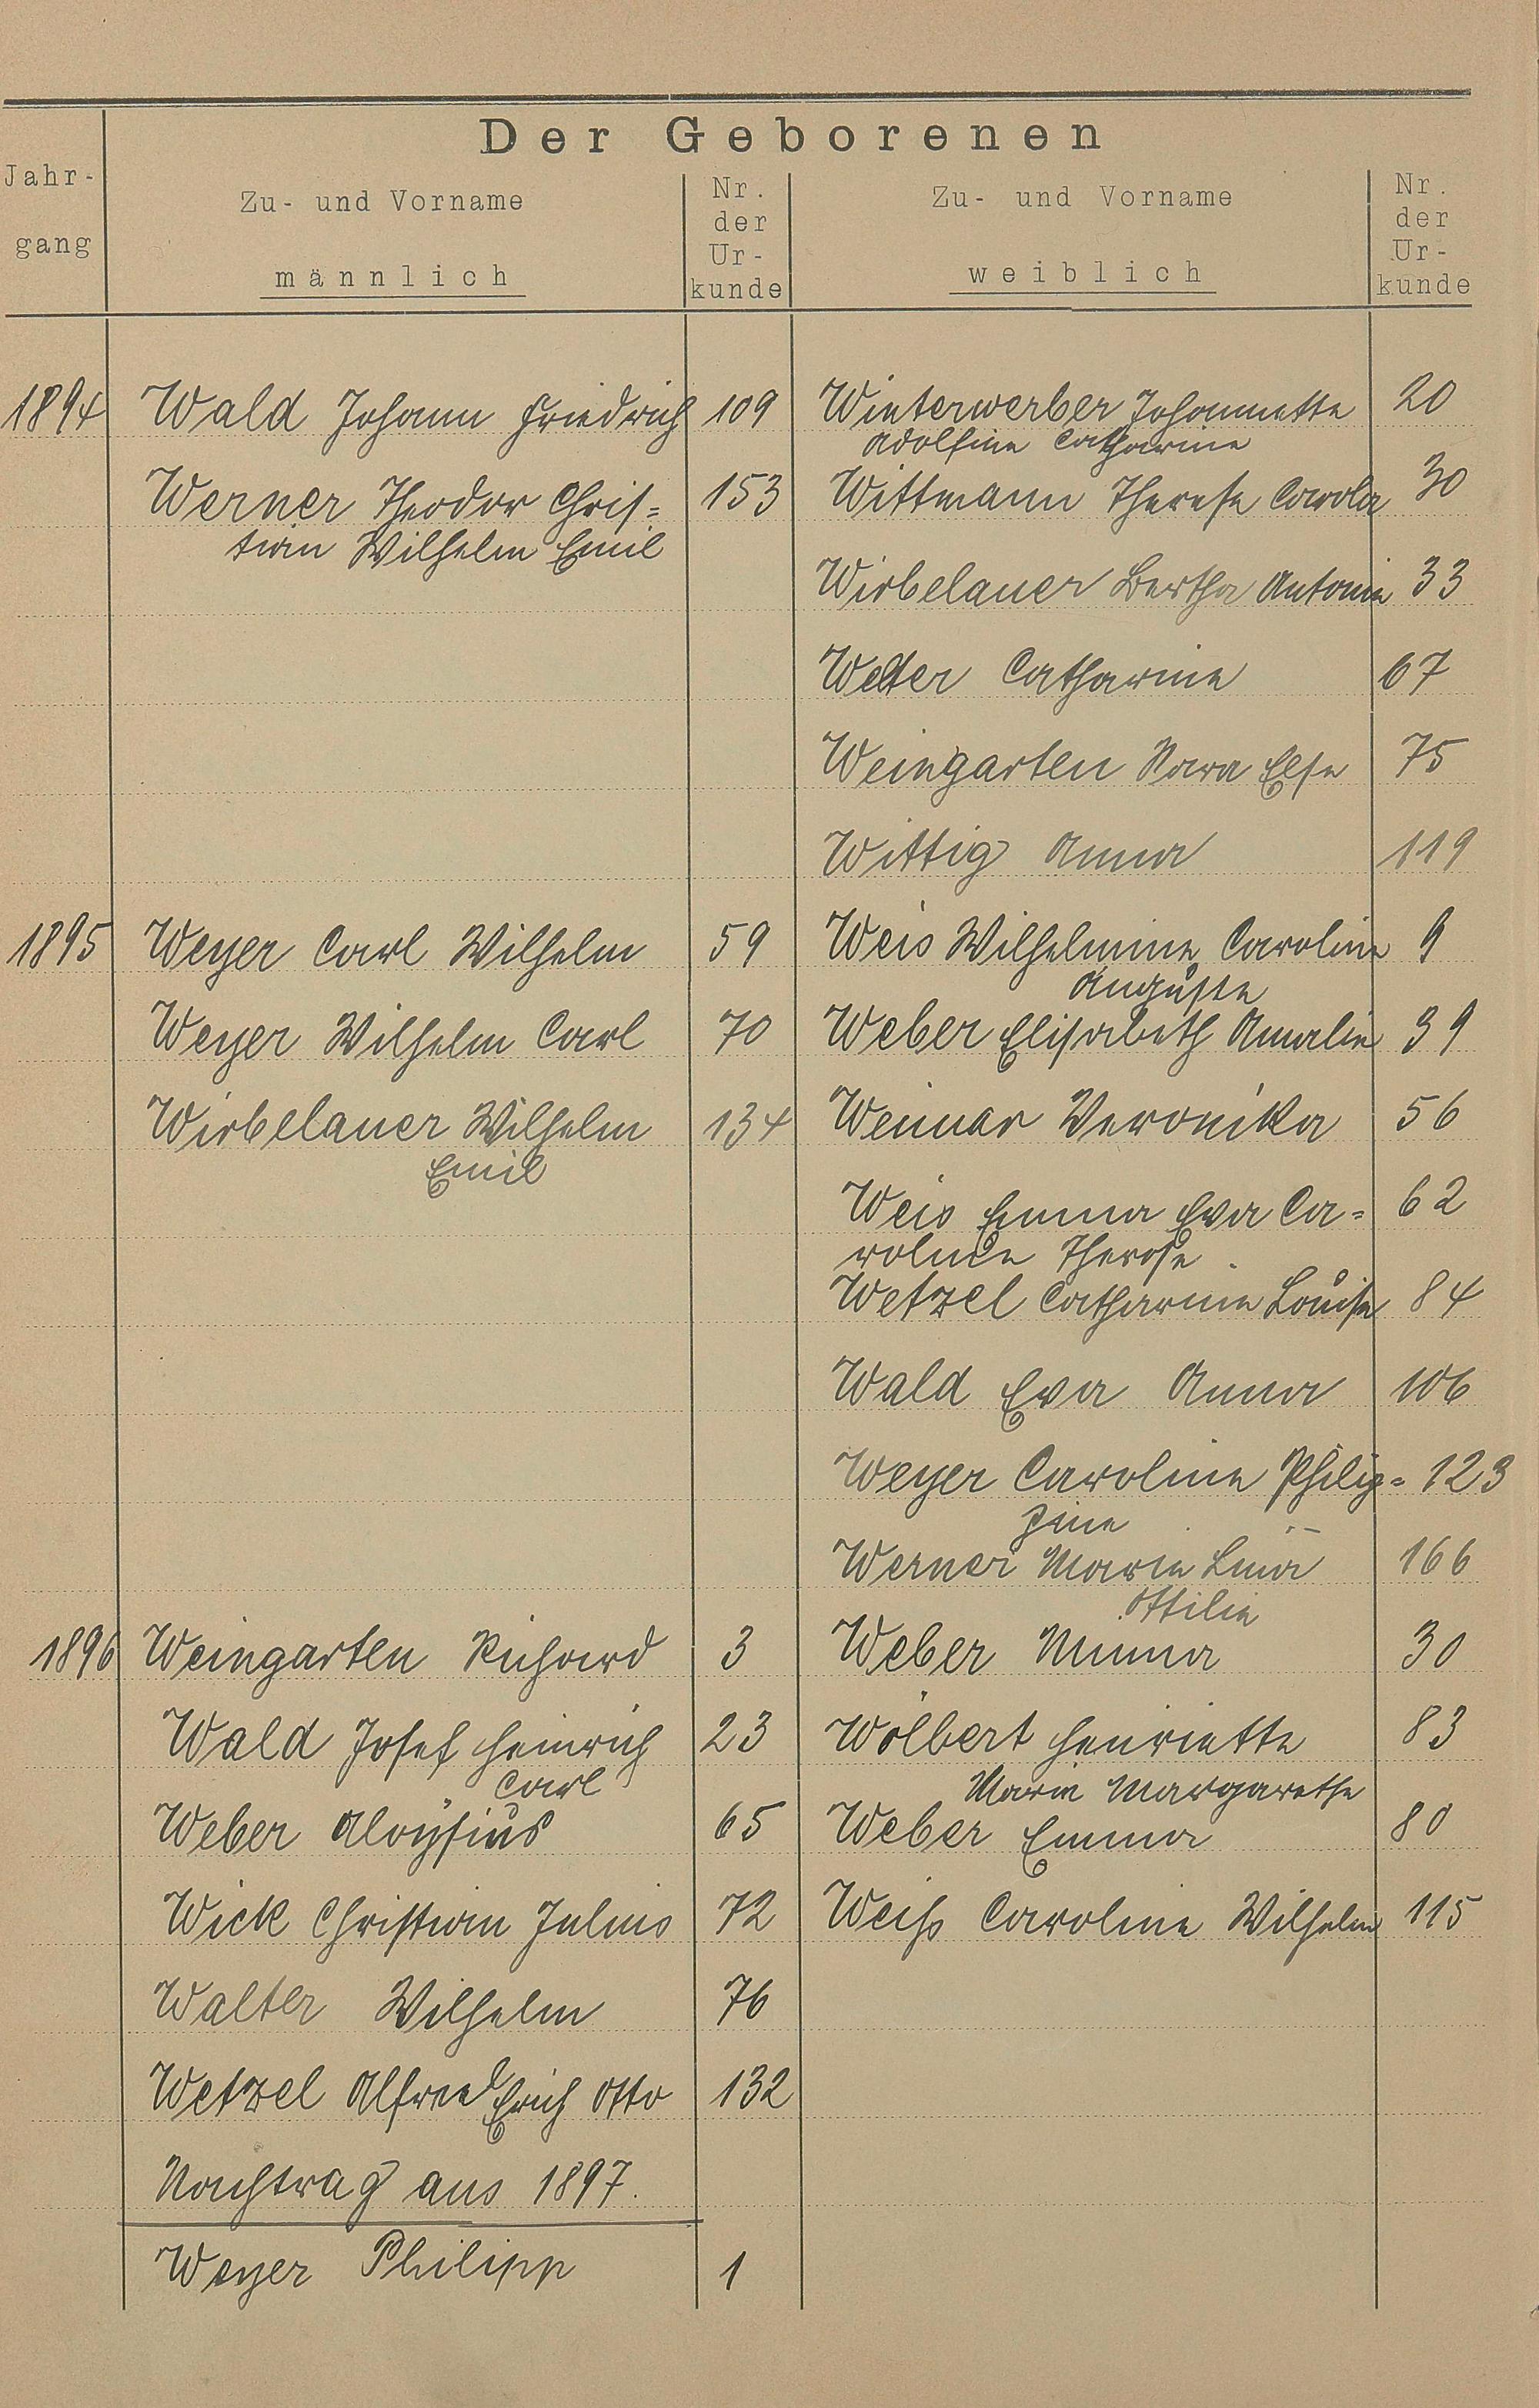 Der Geborenen
Jahr-
gang
Zu- und Vorname
männlich
Nr.
der
Ur-
kunde
Zu- und Vorname
weiblich
Nr.
der
Ur-
kunde
1894 Wald Johann Friedrich 109 Winterwerber Johannette 20
Adolfine Catharine
Werner Theodor Chris= 153 Wittmann Therese Carola 30
tian Wilhelm Emil
Wirbelauer Bertha Antonie 33
Welter Catharine 67
Weingarten Nara Else 75
Wittig Anna 119
1895 Weyer Carl Wilhelm 59 Weis Wilhelmine Caroline 9
Auguste
Weyer Wilhelm Carl 70 Weber Elisabeth Amalie 39
Wirbelauer Wilhelm 134 Weimar Veronika 56
Emil
Weis Emma Eva Ca= 62
roline Therese
Wetzel Catharine Louise 84
Wald Eva Anna 106
Weyer Caroline Philip= 123
pine
Werner Marie Lina 166
Ottilie
1896 Weingarten Richard 3 Weber Minna 30
Wald Josef Heinrich 23 Wölbert Henriette 83
Carl Marie Margarethe
Weber Aloysius 65 Weber Emma 80
Wick Christian Julius 72 Weihs Caroline Wilhelm 115
Walter Wilhelm 76
Wetzel Alfred Erich Otto 132
Nachtrag aus 1897.
Weyer Philipp 1